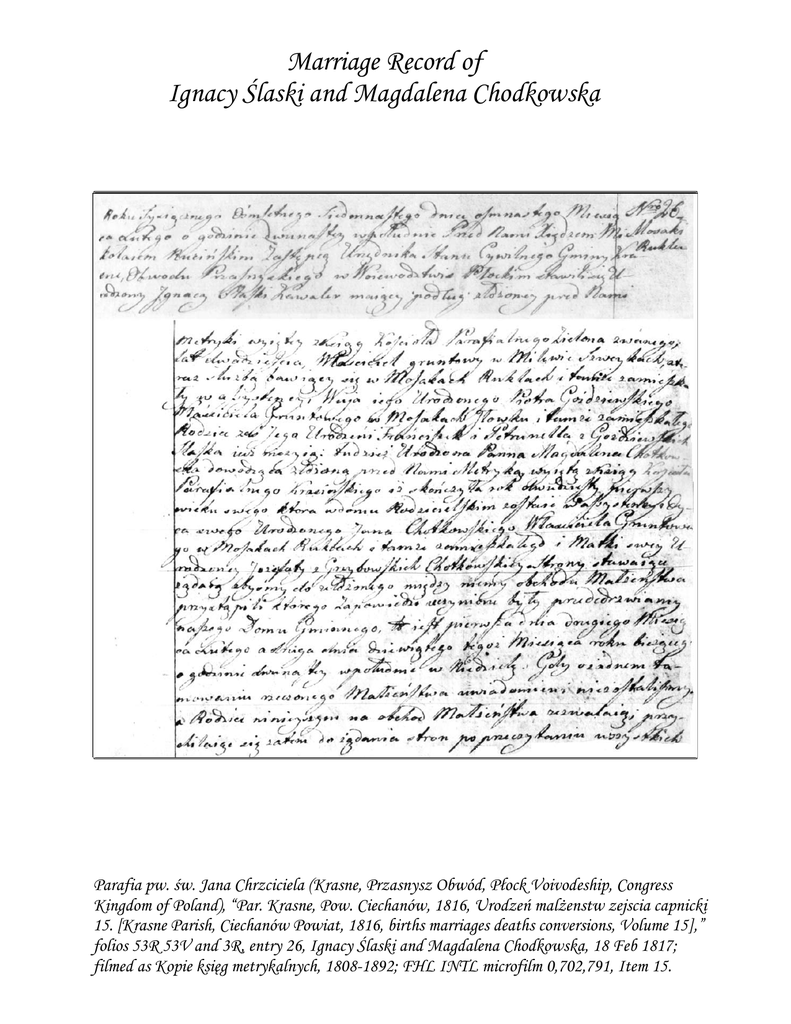 Marriage Record of
Ignacy Ślaski and Magdalena Chodkowska
Roku Tysiącznego Osmsetnego Siedmnastego dnia osmnastego Miesią Nro 26
ca Lutego o godzinie dwunastey w południe Przed Nami Xiędzem Mi Mosaki
kołaiem Ruzińskim Zastępcą Urzędnika Stanu Cywilnego Gminy Kra Rukle
sne, Obwodu Przasnyskiego w Woiewództwie Płockim stawił się U
rodzony Ignacy Slaski Kawaler maiący podług złożoney przed Nami
Metryki wyiętey z Xiąg Kościoła Parafialnego Zielona zwanego,
lat dwadzieścia, Właściciel gruntowy w Milewie Szweykach,
raz służbą bawiący się w Mosakach Ruklach i tamże zamieszka
ły w Assystencyi Wuja iego Urodzonego Piotra Gozdziewskiego
Właściciela Gruntowego w Mosakach i tamże zamieszkałego
Rodzice zaś Jego Urodzeni Franciszek i Petrunella z Gozdziewskich
Slaska iuż nieżyią: tudzież Urodzona Panna Magdalena Chotkow
ska dowodząca złożoną przed Nami Metryką wyiętą z Xiąg Kościoła
Parafialnego Krasińskiego iż skończyła rok dwudziesty pierwszy
wieku swego która w domu Rodzicielskim zostaie w Assystencyi Oy
ca swego Urodzonego Jana Chotkowskiego Właściciela Gruntowe
go w Mosakach Ruklach i tamże zamieszkałego i Matki swey U
rodzoney Jozefaty z Grzybowskich Chotkowskiey strony stawaiące
żądaią abyśmy do ułożonego między niemi obchodu Małżeństwa
przystąpili którego Zapowiedzie uczynione były przed drzwiami
naszego Domu Gminnego, to iest pierwsza dnia drugiego Miesią
ca Lutego a druga dnia dziewiątego tegoż Miesiąca roku bieżącego
o godzinie dwunastey w południe w Niedzielę. Gdy o żadnem ta-
mowaniu rzeczonego Małżeństwa uwiadomieni niezostaliśmy
a Rodzice ninieyszym na obchod Małżeństwa zezwalaią, przy-
chilaiąc się zatem do żądania stron po przeczytaniu wszystkich
Parafia pw. św. Jana Chrzciciela (Krasne, Przasnysz Obwód, Płock Voivodeship, Congress
Kingdom of Poland), “Par. Krasne, Pow. Ciechanów, 1816, Urodzeń malżenstw zejscia capnicki
15. [Krasne Parish, Ciechanów Powiat, 1816, births marriages deaths conversions, Volume 15],”
folios 53R 53V and 3R, entry 26, Ignacy Ślaski and Magdalena Chodkowska, 18 Feb 1817;
filmed as Kopie ksiąg metrykalnych, 1808-1892; FHL INTL microfilm 0,702,791, Item 15.